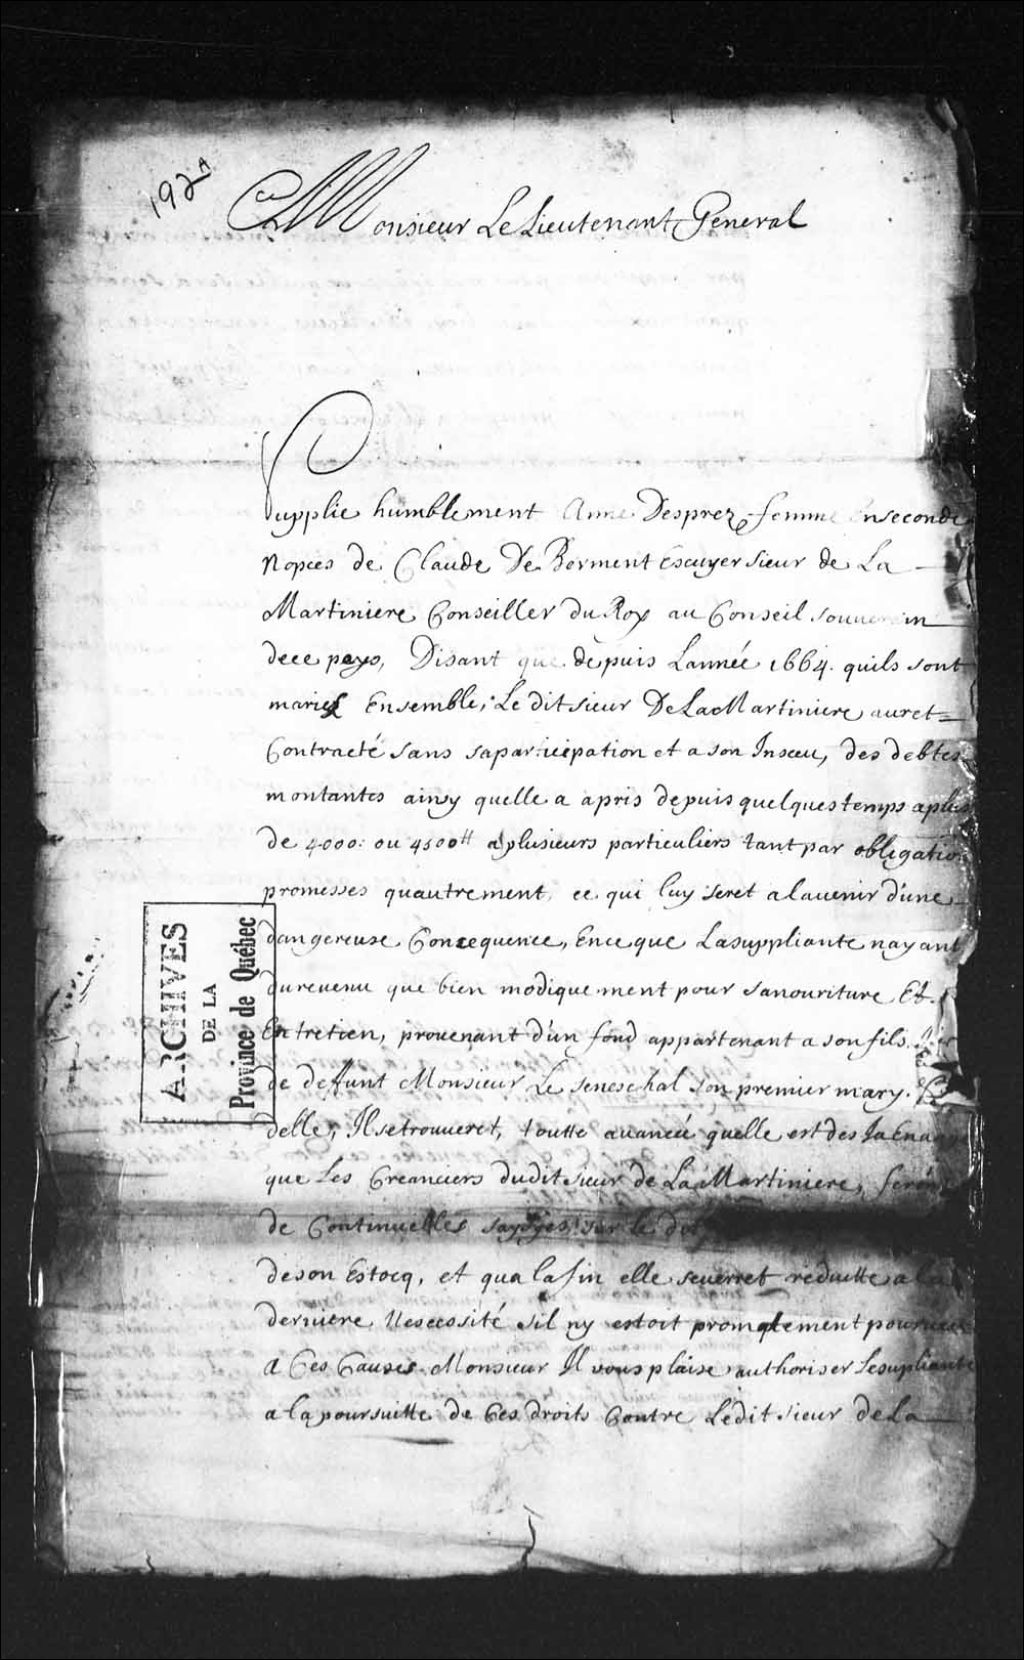 192A
Monsieur Le Lieutenant General
Supplie humblement Anne Desprez femme En seconde
Nopces de Claude De Berment Escuyer sieur de La
Martiniere Conseiller du Roy au Conseil souuerain
dece pays, Disant que depuis Lannée 1664. quils sont
mariés Ensemble, Le dit sieur De La Martiniere auret
Contracté sans saparticipation et a son Insceu, des debtes
montantes ainsy quelle a apris depuis quelques temps aplus
de 4000: ou 4500tt a plusieurs particuliers tant par obligation
promesses quautrement, ce qui luy seret alauenir d'une
dangereuse Consequence, Enceque Lasuppliante nayant
durevenu que bien modiquement pour sanouriture Et
Entretien, prouenant d'un fond appartenant a son fils
de deffunt Monsieur Le seneschal son premier mary.
delle, Il setrouueret, toutte auancée quelle est des Ja En aage
que Les Creanciers dudit sieur de La Martiniere, feront
de Continuelles saysyes sur le
deson Estocq, et qua lafin elle seuerret reduitte a la
derniere Nesecssité sil ny estoit promptement pourueu
A Ces Causes Monsieur Il vous plaise authoriser Lesupliante
a la poursuitte de Ces droits Contre Ledit sieur dela
ARCHIVES
DE LA
Province de Québec